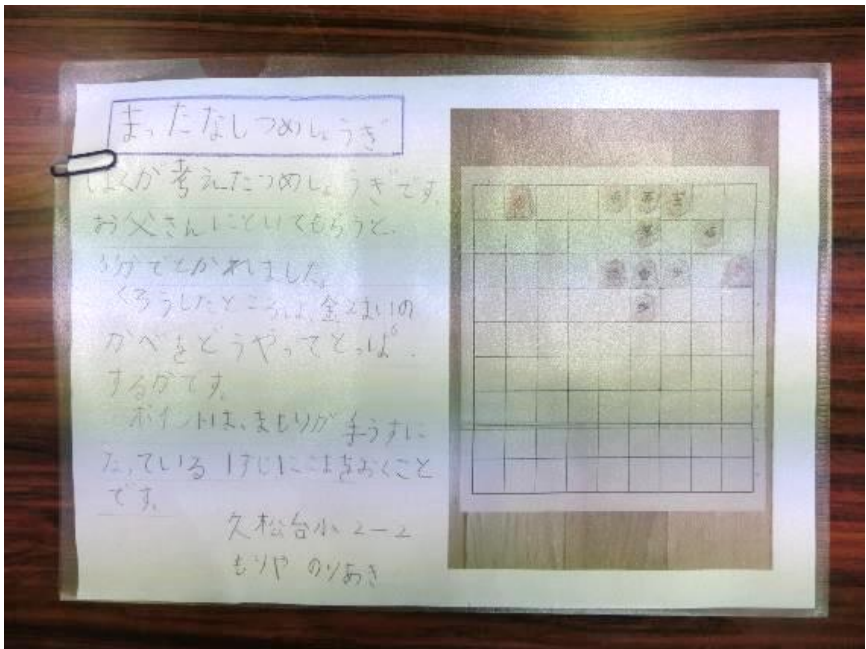 まったなしつめしょうぎ
ぼくが考えたつめしょうぎです。
お父さんにといてもらうと、
分でとかれました。
くろうしたところは、金2まいの
かべをどうやってとっぱ
するかです。
ポイントは、まもりが手うすに
なっている はじにこまをおくこと
です。
久松台小2-2
もりや のりあき